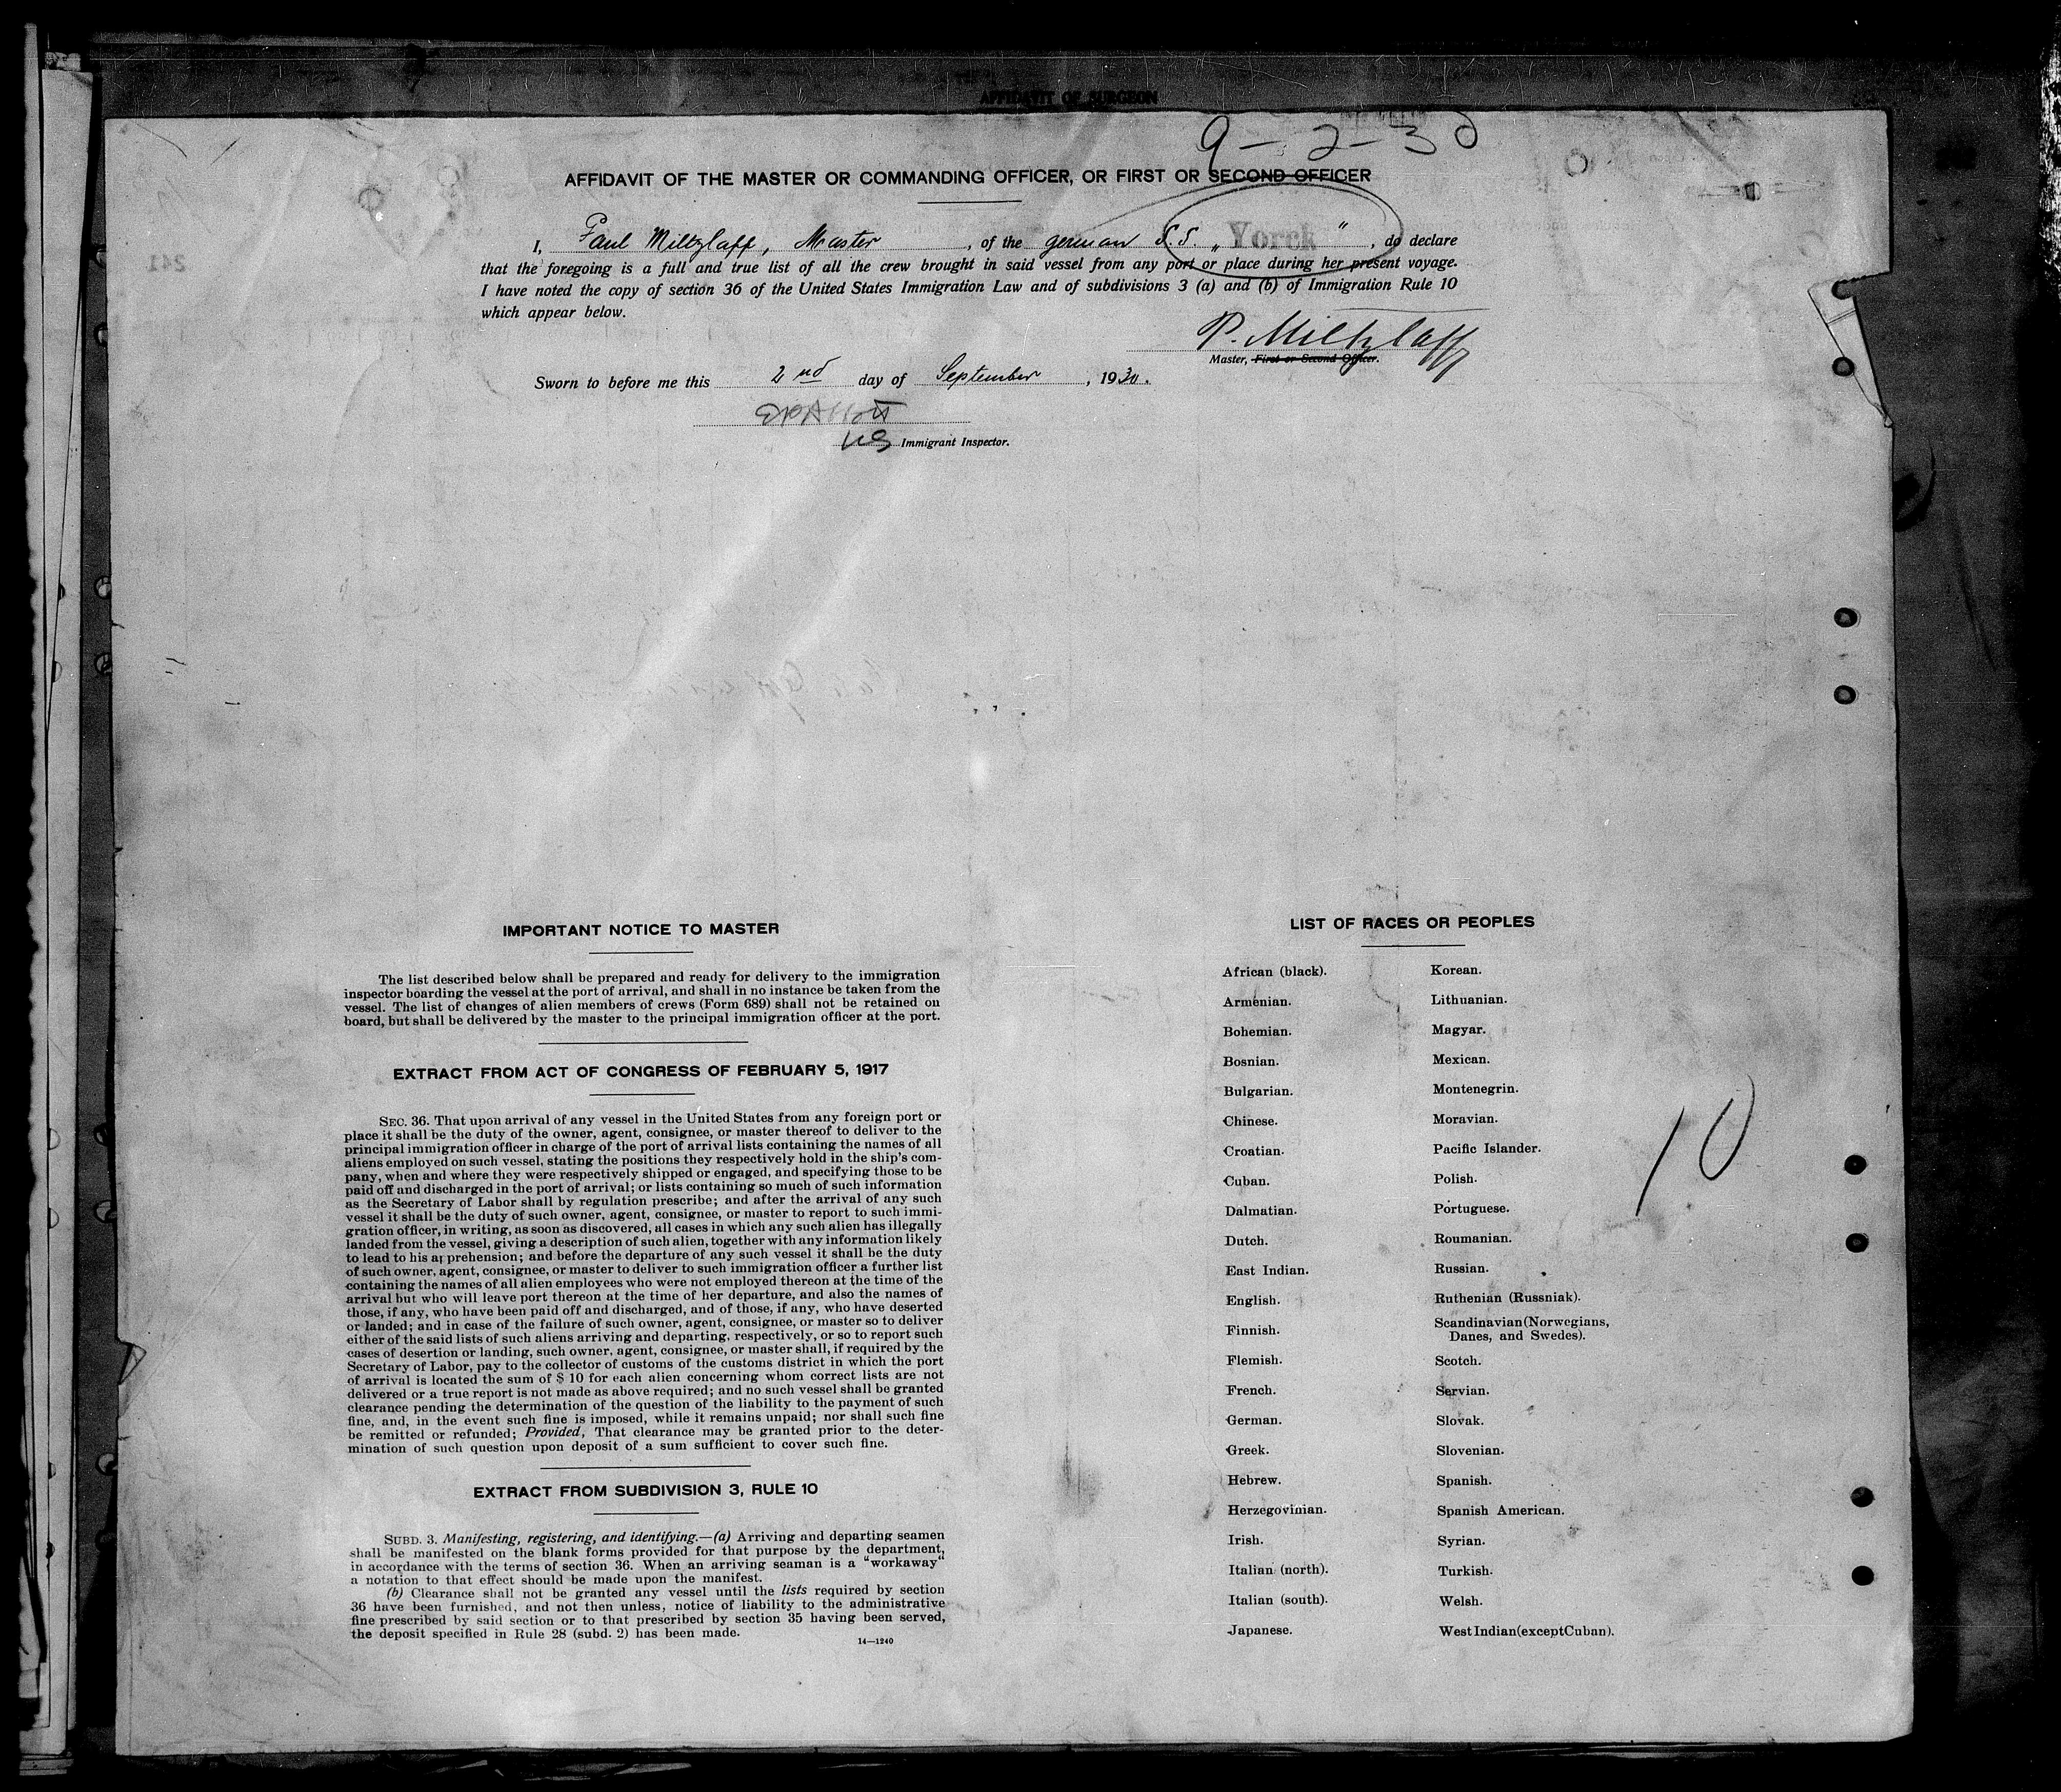 AFFIDAVIT OF SURGEON
9-2-30
AFFIDAVIT OF THE MASTER OR COMMANDING OFFICER, OR FIRST OR SECOND OFFICER
I, Paul Miltzlaff, Master, of the german S.S. „Yorck“, do declare
that the foregoing is a full and true list of all the crew brought in said vessel from any port or place during her present voyage.
I have noted the copy of section 36 of the United States Immigration Law and of subdivisions 3 (a) and (b) of Immigration Rule 10
which appear below.
P. Miltzlaff
Master, First or Second Officer.
Sworn to before me this 2nd day of September, 1930.
US Immigrant Inspector.
241
IMPORTANT NOTICE TO MASTER
The list described below shall be prepared and ready for delivery to the immigration
inspector boarding the vessel at the port of arrival, and shall in no instance be taken from the
vessel. The list of changes of alien members of crews (Form 689) shall not be retained on
board, but shall be delivered by the master to the principal immigration officer at the port.
EXTRACT FROM ACT OF CONGRESS OF FEBRUARY 5, 1917
SEC. 36. That upon arrival of any vessel in the United States from any foreign port or
place it shall be the duty of the owner, agent, consignee, or master thereof to deliver to the
principal immigration officer in charge of the port of arrival lists containing the names of all
aliens employed on such vessel, stating the positions they respectively hold in the ship's com-
pany, when and where they were respectively shipped or engaged, and specifying those to be
paid off and discharged in the port of arrival; or lists containing so much of such information
as the Secretary of Labor shall by regulation prescribe; and after the arrival of any such
vessel it shall be the duty of such owner, agent, consignee, or master to report to such immi-
gration officer, in writing, as soon as discovered, all cases in which any such alien has illegally
landed from the vessel, giving a description of such alien, together with any information likely
to lead to his apprehension; and before the departure of any such vessel it shall be the duty
of such owner, agent, consignee, or master to deliver to such immigration officer a further list
containing the names of all alien employees who were not employed thereon at the time of the
arrival but who will leave port thereon at the time of her departure, and also the names of
those, if any, who have been paid off and discharged, and of those, if any, who have deserted
or landed; and in case of the failure of such owner, agent, consignee, or master so to deliver
either of the said lists of such aliens arriving and departing, respectively, or so to report such
cases of desertion or landing, such owner, agent, consignee, or master shall, if required by the
Secretary of Labor, pay to the collector of customs of the customs district in which the port
of arrival is located the sum of $ 10 for each alien concerning whom correct lists are not
delivered or a true report is not made as above required; and no such vessel shall be granted
clearance pending the determination of the question of the liability to the payment of such
fine, and, in the event such fine is imposed, while it remains unpaid; nor shall such fine
be remitted or refunded; Provided, That clearance may be granted prior to the deter-
mination of such question upon deposit of a sum sufficient to cover such fine.
EXTRACT FROM SUBDIVISION 3, RULE 10
SUBD. 3. Manifesting, registering, and identifying.—(a) Arriving and departing seamen
shall be manifested on the blank forms provided for that purpose by the department,
in accordance with the terms of section 36. When an arriving seaman is a “workaway“
a notation to that effect should be made upon the manifest.
(b) Clearance shall not be granted any vessel until the lists required by section
36 have been furnished, and not then unless, notice of liability to the administrative
fine prescribed by said section or to that prescribed by section 35 having been served,
the deposit specified in Rule 28 (subd. 2) has been made.
14—1240
LIST OF RACES OR PEOPLES
African (black).
Armenian.
Bohemian.
Bosnian.
Bulgarian.
Chinese.
Croatian.
Cuban.
Dalmatian.
Dutch.
East Indian.
English.
Finnish.
Flemish.
French.
German.
Greek.
Hebrew.
Herzegovinian.
Irish.
Italian (north).
Italian (south).
Japanese.
Korean.
Lithuanian.
Magyar.
Mexican.
Montenegrin.
Moravian.
Pacific Islander.
Polish.
Portuguese.
Roumanian.
Russian.
Ruthenian (Russniak).
Scandinavian (Norwegians,
Danes, and Swedes).
Scotch.
Servian.
Slovak.
Slovenian.
Spanish.
Spanish American.
Syrian.
Turkish.
Welsh.
West Indian (except Cuban).
10